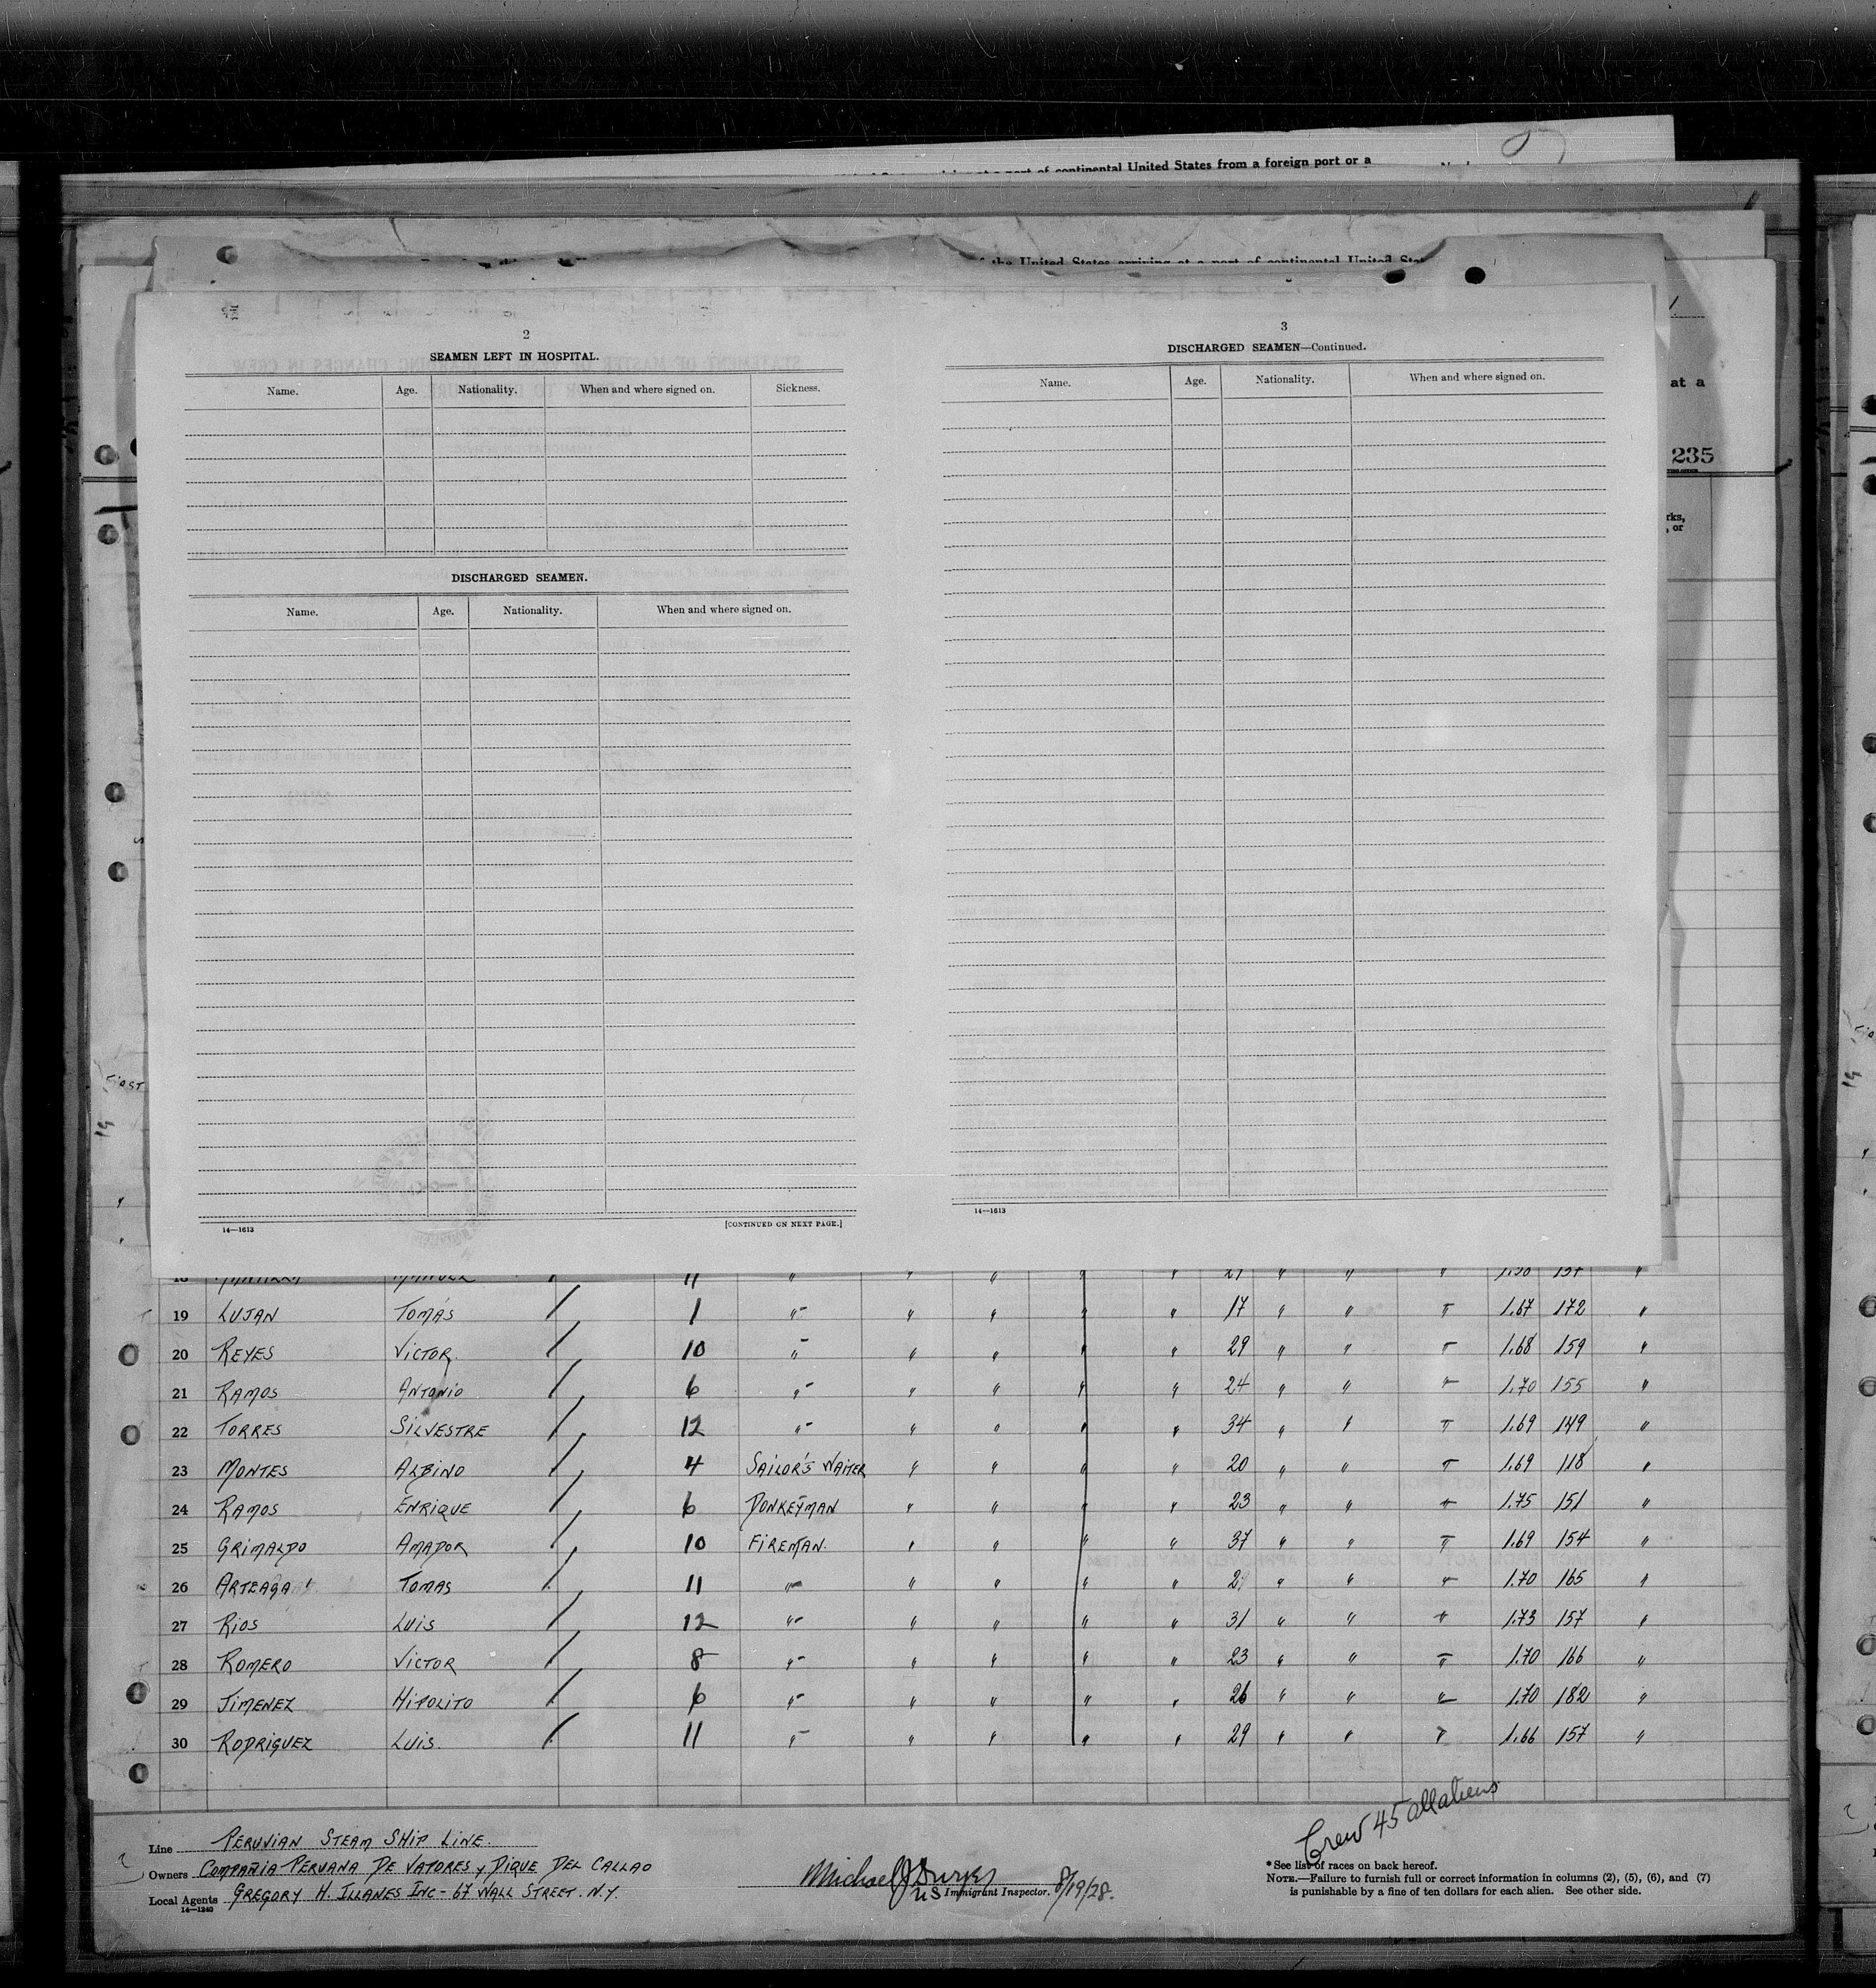 continental United States from a foreign port or a
the United States arriving at a port of continental United
at a
235
rks,
, or
2
SEAMEN LEFT IN HOSPITAL.
Name. Age. Nationality. When and where signed on. Sickness.
DISCHARGED SEAMEN.
Name. Age. Nationality. When and where signed on.
14—1613 [CONTINUED ON NEXT PAGE.]
3
DISCHARGED SEAMEN—Continued.
Name. Age. Nationality. When and where signed on.
14—1613
19 LUJAN TOMÁS / 1 " " " " " 17 " " " 1.67 172 "
20 REYES VICTOR. / 10 " " " " " 29 " " " 1.68 159 "
21 RAMOS ANTONIO / 6 " " " " " 24 " " " 1.70 155 "
22 TORRES SILVESTRE / 12 " " " " " 34 " " " 1.69 149 "
23 MONTES ALBINO / 4 SAILOR'S WAITER " " " " 20 " " " 1.69 118 "
24 RAMOS ENRIQUE / 6 DONKEYMAN " " " " 23 " " " 1.75 151 "
25 GRIMALDO AMADOR / 10 FIREMAN. " " " " 37 " " " 1.69 154 "
26 ARTEAGA TOMAS / 11 " " " " " " " " 1.70 165 "
27 RIOS LUIS / 12 " " " " " 31 " " " 1.73 157 "
28 ROMERO VICTOR / 8 " " " " " 23 " " " 1.70 166 "
29 JIMENEZ HIPOLITO / 6 " " " " " 26 " " " 1.70 182 "
30 RODRIGUEZ LUIS. / 11 " " " " " 29 " " " 1.66 157 "
Crew 45 all aliens
Line PERUVIAN STEAM SHIP LINE.
Owners COMPAÑIA PERUANA DE VAPORES y DIQUE DEL CALLAO
Local Agents GREGORY H. ILLANES INC - 67 WALL STREET. N.Y.
14—1240
Michael J
US Immigrant Inspector. 8/19/28.
* See list of races on back hereof.
NOTE.—Failure to furnish full or correct information in columns (2), (5), (6), and (7)
is punishable by a fine of ten dollars for each alien. See other side.